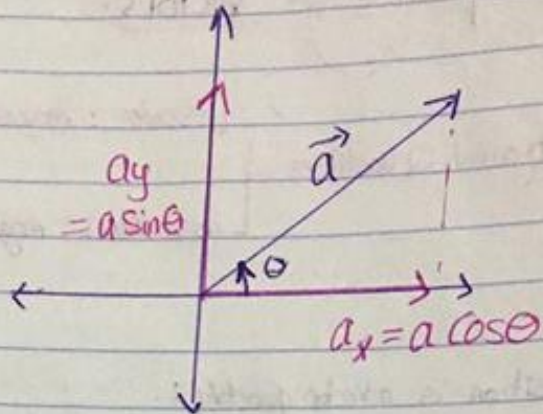 ay
= a sinθ
a⃗
θ
aₓ = a cosθ